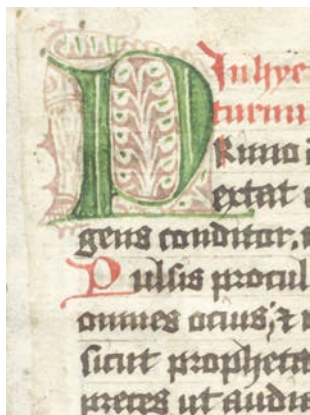 In hye
turnu
PRimo
extat
gens conditor,
Pulsis procul
omnes ocius, ⁊ n
sicut propheta
preces ut audia